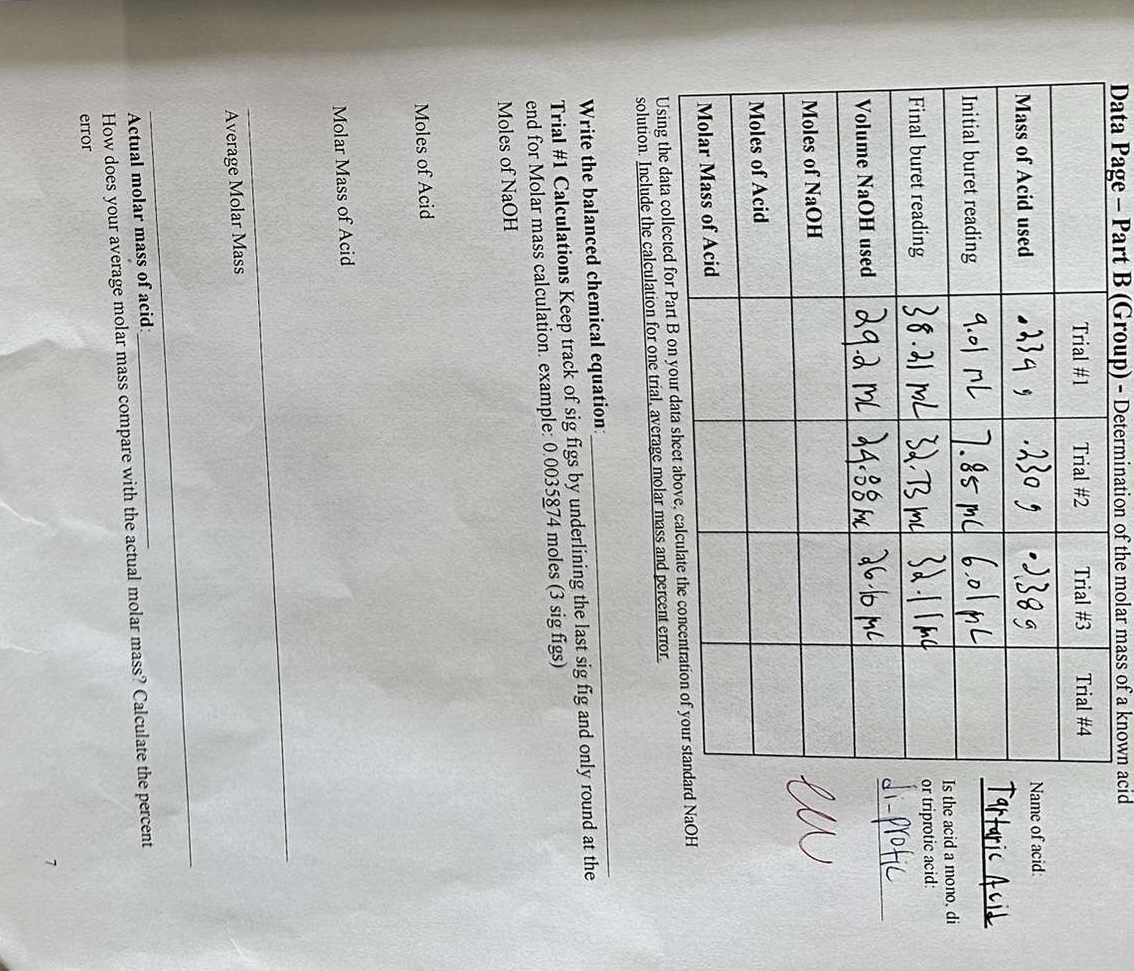 Data Page – Part B (Group) - Determination of the molar mass of a known acid
Trial #1 Trial #2 Trial #3 Trial #4
Mass of Acid used .234 g .230 g .238 g
Initial buret reading 9.01 mL 7.85 mL 6.01 mL
Final buret reading 38.21 mL 32.73 mL 32.11 mL
Volume NaOH used 29.2 mL 26.10 mL
Moles of NaOH
Moles of Acid
Molar Mass of Acid
Name of acid:
Tartaric Acid
Is the acid a mono, di
or triprotic acid:
di-protic
Using the data collected for Part B on your data sheet above, calculate the concentration of your standard NaOH
solution. Include the calculation for one trial, average molar mass and percent error.
Write the balanced chemical equation:
Trial #1 Calculations Keep track of sig figs by underlining the last sig fig and only round at the
end for Molar mass calculation. example: 0.0035874 moles (3 sig figs)
Moles of NaOH
Moles of Acid
Molar Mass of Acid
Average Molar Mass
Actual molar mass of acid:
How does your average molar mass compare with the actual molar mass? Calculate the percent
error
7